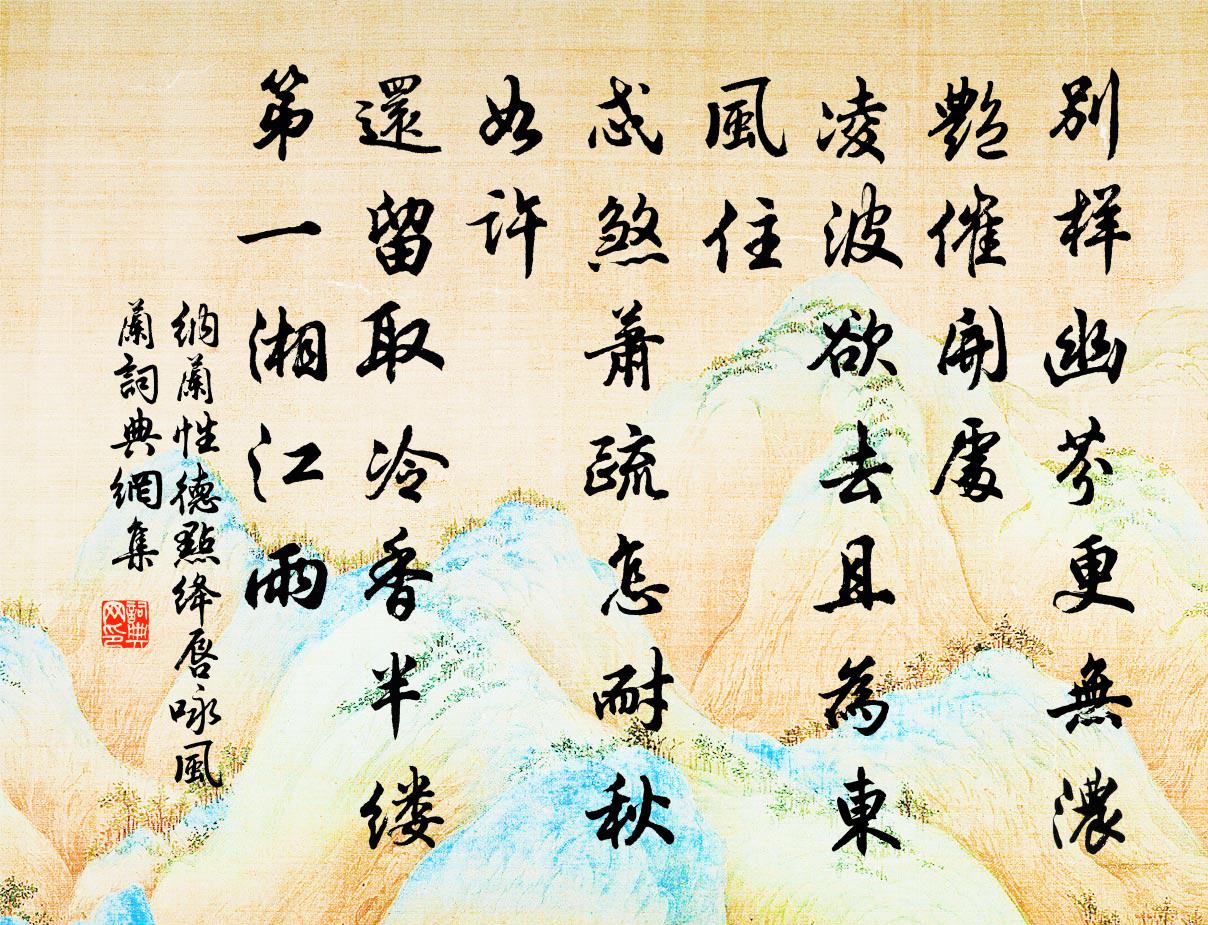 別样幽芬更無濃
艷催開處
凌波欲去且為東
風住
忒煞蕭疏怎耐秋
如許
還留取冷香半缕
第一湘江雨
納蘭性德點絳唇咏風
蘭詞典網集
詞典网印